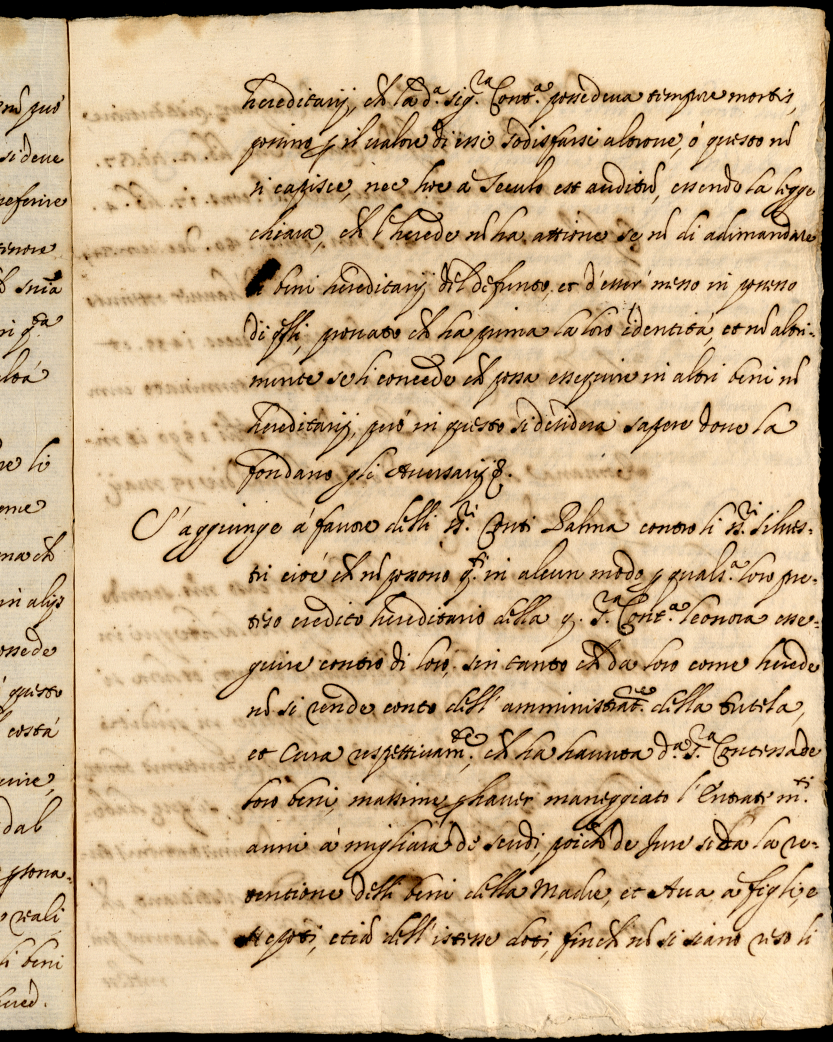 hereditarij, ch la d.ª sig.ra Cont.ª possedeua tempore mortis,
possino p il ualore di essi sodisfarsi altroue, ó questo nõ
si capisce, nec hoc a seculo est auditũ, essendo la legge
chiara, ch l'herede nõ ha attione se nõ di adimandare
li beni hereditarij del defunto, et d'esser messo in possesso
di q̃lli, prouato ch ha prima la loro identità, et nõ altri-
mente se li concede ch possa esseguire in altri beni nõ
hereditarij, però in questo si desidera sapere doue la
fondano gli Auersarij &.
S'aggiunge á fauore delli ss.ri Conti Palma contro li ss.ri Silues-
tri cioé ch nõ possono q.ti in alcun modo p quals.ª loro pre-
teso credito hereditario della q. S.ra Cont.ª leonora esse-
guire contro di loro, sin tanto ch da loro come herede
nõ si rende conto dell'amministrat.ne della tutela,
et Cura respettiuam.te, ch ha hauuta d.ª S.ra Contessa de
loro beni, massime p hauer maneggiato l'Entrate m.ti
anni à migliaia de scudi, poich de Jure si da la re-
tentione delli beni della Madre, et Aua a figli, e
Nepoti, etiã dell'istesse doti, finch nõ si siano reso li
enõ può
si deue
referire
tenore
ri q.ta
re li
ma ch
in alijs
ossede
questo
costá
uire,
dal
psona-
reali
li beni
hered.